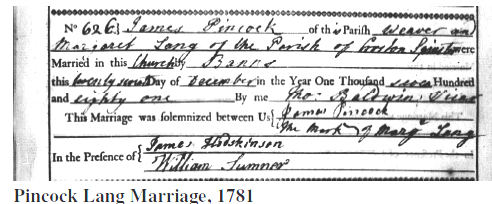 No 626 } James Pincock of this Parish Weaver and
Margaret Lang of the Parish of Croston Spinster were
Married in this Church by Banns
this twenty second Day of December in the Year One Thousand seven Hundred
and eighty one By me Tho: Baldwin Vicar
This Marriage was solemnized between Us { James Pincock
The Mark of Margt Lang
In the Presence of { James Hodskinson
William Sumner
Pincock Lang Marriage, 1781